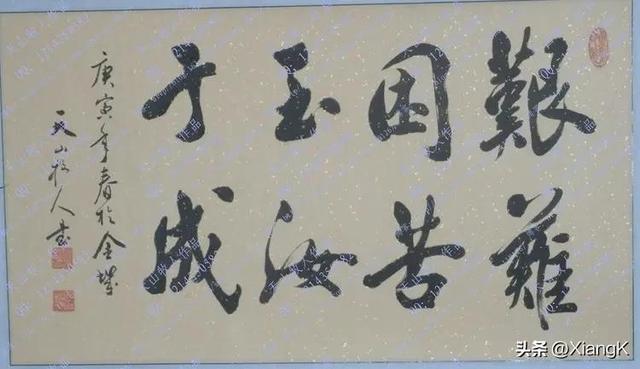 艱難
困苦
玉汝
于成
庚寅年春於金城
天山牧人书
头条 @XiangK